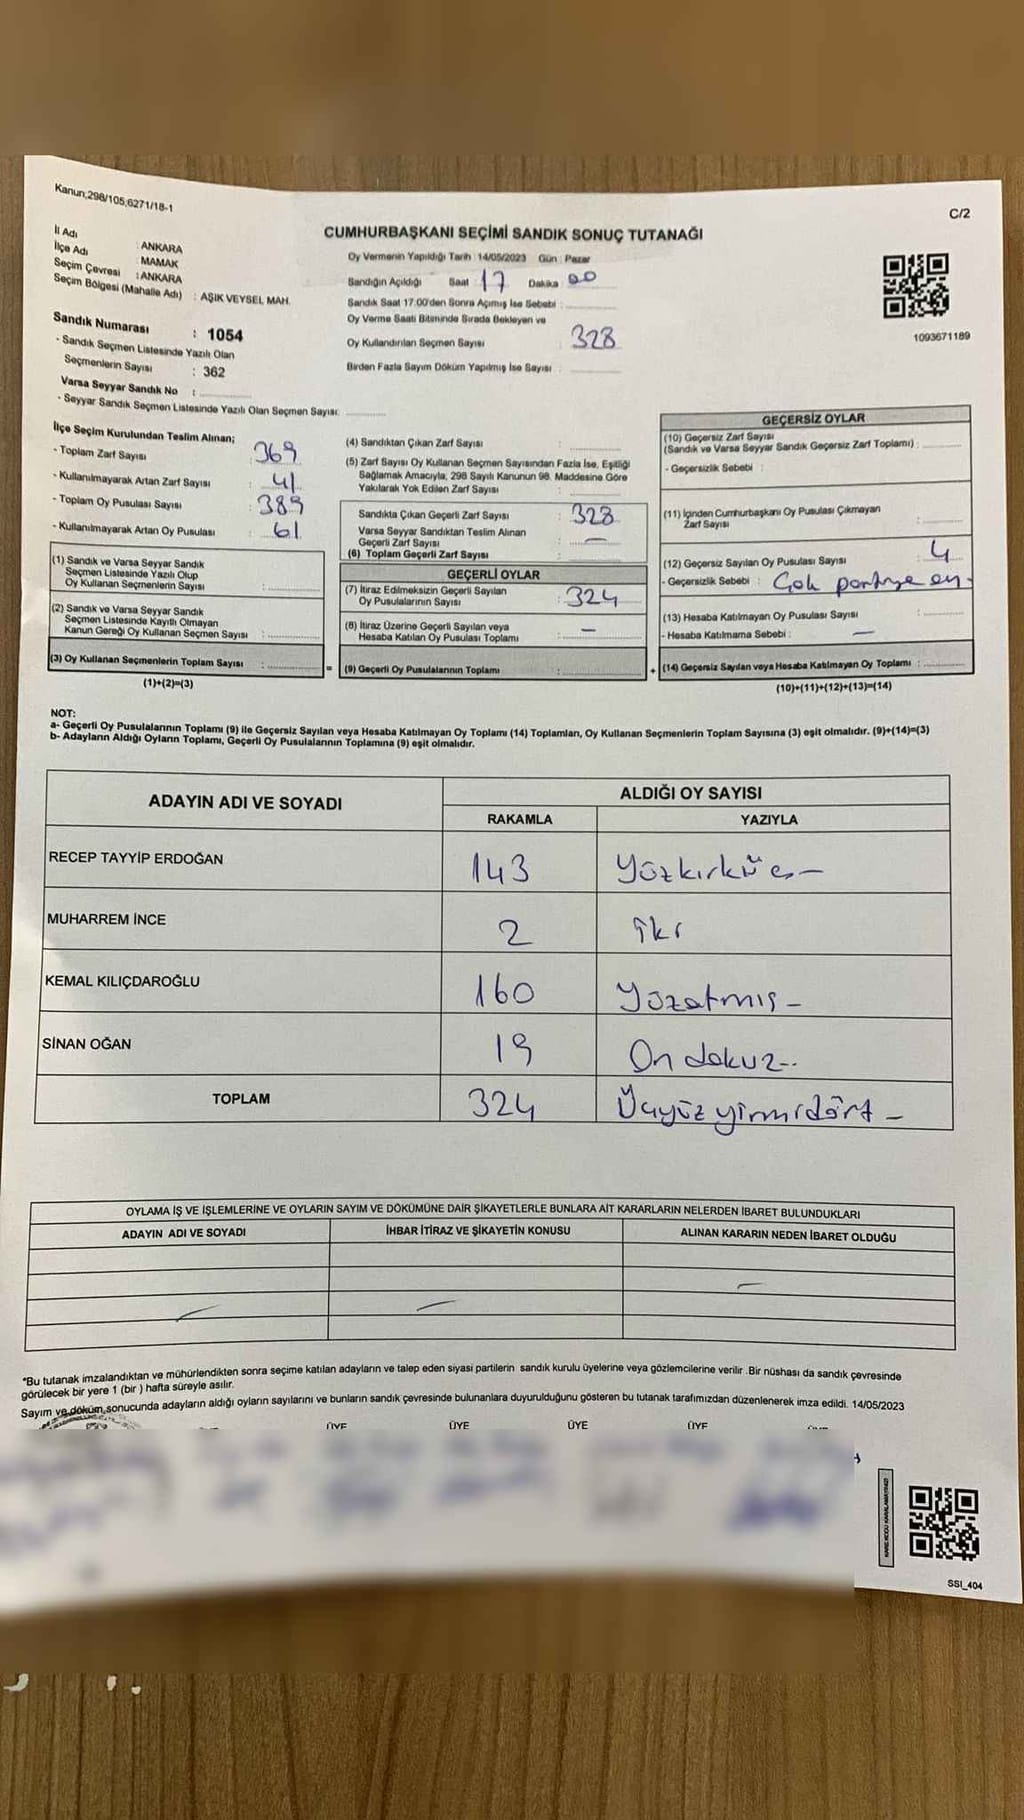 Kanun;298/105;6271/18-1
C/2
CUMHURBAŞKANI SEÇİMİ SANDIK SONUÇ TUTANAĞI
İl Adı : ANKARA
İlçe Adı : MAMAK
Seçim Çevresi : ANKARA
Seçim Bölgesi (Mahalle Adı) : AŞIK VEYSEL MAH.
Sandık Numarası : 1054
- Sandık Seçmen Listesinde Yazılı Olan
Seçmenlerin Sayısı : 362
Varsa Seyyar Sandık No :
- Seyyar Sandık Seçmen Listesinde Yazılı Olan Seçmen Sayısı:
Oy Vermenin Yapıldığı Tarih : 14/05/2023 Gün : Pazar
Sandığın Açıldığı Saat : 17 Dakika : 00
Sandık Saat 17:00'den Sonra Açımış İse Sebebi :
Oy Verme Saati Bitiminde Sırada Bekleyen ve
Oy Kullandırılan Seçmen Sayısı : 328
Birden Fazla Sayım Döküm Yapılmış İse Sayısı :
1093671189
İlçe Seçim Kurulundan Teslim Alınan;
- Toplam Zarf Sayısı : 369
- Kullanılmayarak Artan Zarf Sayısı : 41
- Toplam Oy Pusulası Sayısı : 389
- Kullanılmayarak Artan Oy Pusulası : 61
(1) Sandık ve Varsa Seyyar Sandık
Seçmen Listesinde Yazılı Olup
Oy Kullanan Seçmenlerin Sayısı :
(2) Sandık ve Varsa Seyyar Sandık
Seçmen Listesinde Kayıtlı Olmayan
Kanun Gereği Oy Kullanan Seçmen Sayısı :
(3) Oy Kullanan Seçmenlerin Toplam Sayısı :
(1)+(2)=(3)
(4) Sandıktan Çıkan Zarf Sayısı :
(5) Zarf Sayısı Oy Kullanan Seçmen Sayısından Fazla İse, Eşitliği
Sağlamak Amacıyla, 298 Sayılı Kanunun 98. Maddesine Göre
Yakılarak Yok Edilen Zarf Sayısı :
Sandıkta Çıkan Geçerli Zarf Sayısı : 328
Varsa Seyyar Sandıktan Teslim Alınan
Geçerli Zarf Sayısı : —
(6) Toplam Geçerli Zarf Sayısı :
GEÇERLİ OYLAR
(7) İtiraz Edilmeksizin Geçerli Sayılan
Oy Pusulalarının Sayısı : 324
(8) İtiraz Üzerine Geçerli Sayılan veya
Hesaba Katılan Oy Pusulası Toplamı : —
= (9) Geçerli Oy Pusulalarının Toplamı :
GEÇERSİZ OYLAR
(10) Geçersiz Zarf Sayısı
(Sandık ve Varsa Seyyar Sandık Geçersiz Zarf Toplamı) :
- Geçersizlik Sebebi :
(11) İçinden Cumhurbaşkanı Oy Pusulası Çıkmayan
Zarf Sayısı :
(12) Geçersiz Sayılan Oy Pusulası Sayısı : 4
- Geçersizlik Sebebi : Çok partiye oy.
(13) Hesaba Katılmayan Oy Pusulası Sayısı :
- Hesaba Katılmama Sebebi : —
+ (14) Geçersiz Sayılan veya Hesaba Katılmayan Oy Toplamı :
(10)+(11)+(12)+(13)=(14)
NOT:
a- Geçerli Oy Pusulalarının Toplamı (9) ile Geçersiz Sayılan veya Hesaba Katılmayan Oy Toplamı (14) Toplamları, Oy Kullanan Seçmenlerin Toplam Sayısına (3) eşit olmalıdır. (9)+(14)=(3)
b- Adayların Aldığı Oyların Toplamı, Geçerli Oy Pusulalarının Toplamına (9) eşit olmalıdır.
ADAYIN ADI VE SOYADI ALDIĞI OY SAYISI
RAKAMLA YAZIYLA
RECEP TAYYİP ERDOĞAN 143 Yüzkırküç —
MUHARREM İNCE 2 İki
KEMAL KILIÇDAROĞLU 160 Yüzatmış —
SİNAN OĞAN 19 On dokuz --
TOPLAM 324 Üçyüzyirmidört —
OYLAMA İŞ VE İŞLEMLERİNE VE OYLARIN SAYIM VE DÖKÜMÜNE DAİR ŞİKAYETLERLE BUNLARA AİT KARARLARIN NELERDEN İBARET BULUNDUKLARI
ADAYIN ADI VE SOYADI İHBAR İTİRAZ VE ŞİKAYETİN KONUSU ALINAN KARARIN NEDEN İBARET OLDUĞU
*Bu tutanak imzalandıktan ve mühürlendikten sonra seçime katılan adayların ve talep eden siyasi partilerin sandık kurulu üyelerine veya gözlemcilerine verilir .Bir nüshası da sandık çevresinde
görülecek bir yere 1 (bir ) hafta süreyle asılır.
Sayım ve döküm sonucunda adayların aldığı oyların sayılarını ve bunların sandık çevresinde bulunanlara duyurulduğunu gösteren bu tutanak tarafımızdan düzenlenerek imza edildi. 14/05/2023
ÜYE ÜYE ÜYE ÜYE
SSI_404